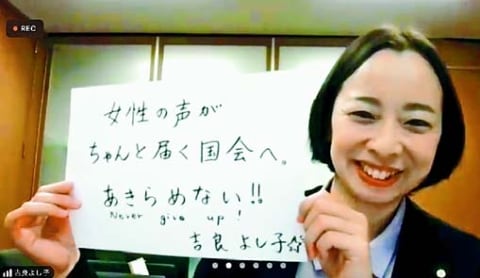 REC
女性の声が
ちゃんと届く国会へ。
あきらめない!!
Never give up!
吉良よし子☆
吉良よし子